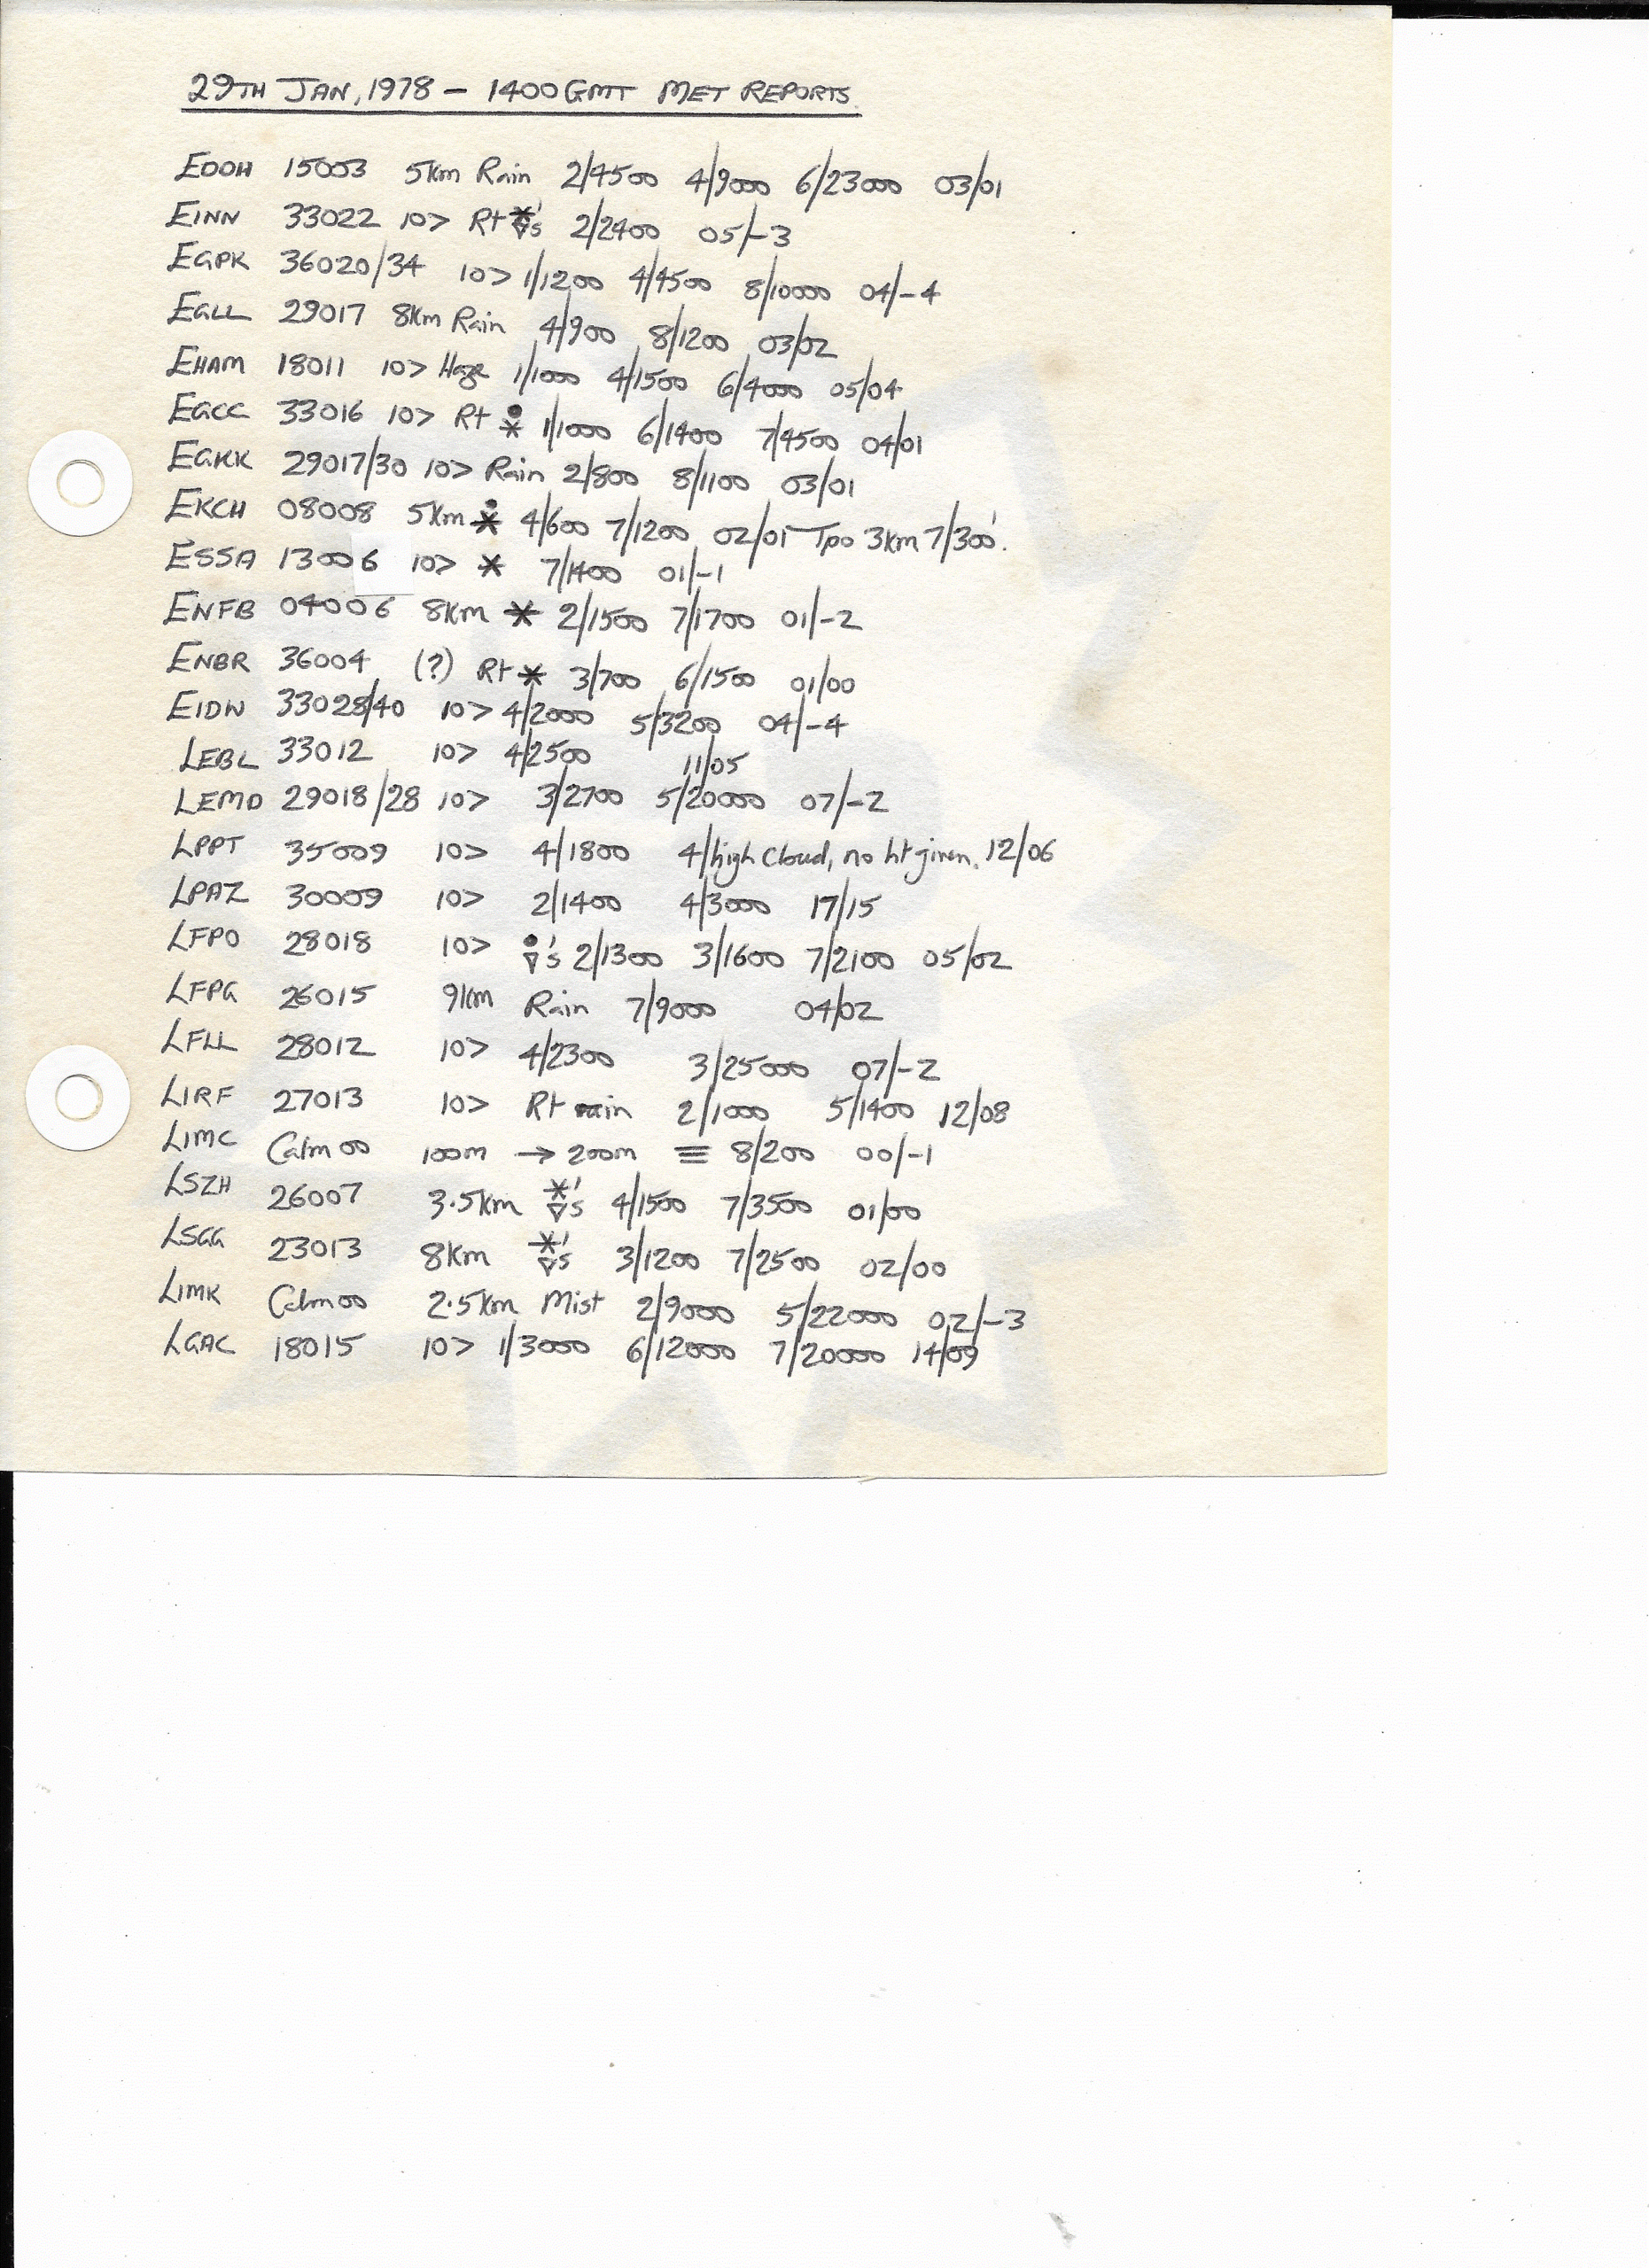 29TH JAN, 1978 – 1400 GMT MET REPORTS.
EDDH 15003 5Km Rain 2/4500 4/9000 6/23000 03/01
EINN 33022 10> Rt *▽'s 2/2400 05/-3
EGPK 36020/34 10> 1/1200 4/4500 8/10000 04/-4
EGLL 29017 8Km Rain 4/900 8/1200 03/02
EHAM 18011 10> Haze 1/1000 4/1500 6/4000 05/04
EGCC 33016 10> Rt •* 1/1000 6/1400 7/4500 04/01
EGKK 29017/30 10> Rain 2/800 8/1100 03/01
EKCH 08008 5Km •* 4/600 7/1200 02/01 Tpo 3Km 7/300'.
ESSA 13006 10> * 7/1400 01/-1
ENFB 04006 8Km * 2/1500 7/1700 01/-2
ENBR 36004 (?) Rt * 3/700 6/1500 01/00
EIDW 33028/40 10> 4/2000 5/3200 04/-4
LEBL 33012 10> 4/2500 11/05
LEMD 29018/28 10> 3/2700 5/20000 07/-2
LPPT 35009 10> 4/1800 4/high cloud, no ht given. 12/06
LPAZ 30009 10> 2/1400 4/3000 17/15
LFPO 28018 10> •▽'s 2/1300 3/1600 7/2100 05/02
LFPG 26015 9Km Rain 7/9000 04/02
LFLL 28012 10> 4/2300 3/25000 07/-2
LIRF 27013 10> Rt rain 2/1000 5/1400 12/08
LIMC Calm 00 100m → 200m ≡ 8/200 00/-1
LSZH 26007 3.5Km *▽'s 4/1500 7/3500 01/00
LSGG 23013 8Km *▽'s 3/1200 7/2500 02/00
LIMK Calm 00 2.5Km Mist 2/9000 5/22000 02/-3
LGAC 18015 10> 1/3000 6/12000 7/20000 14/09